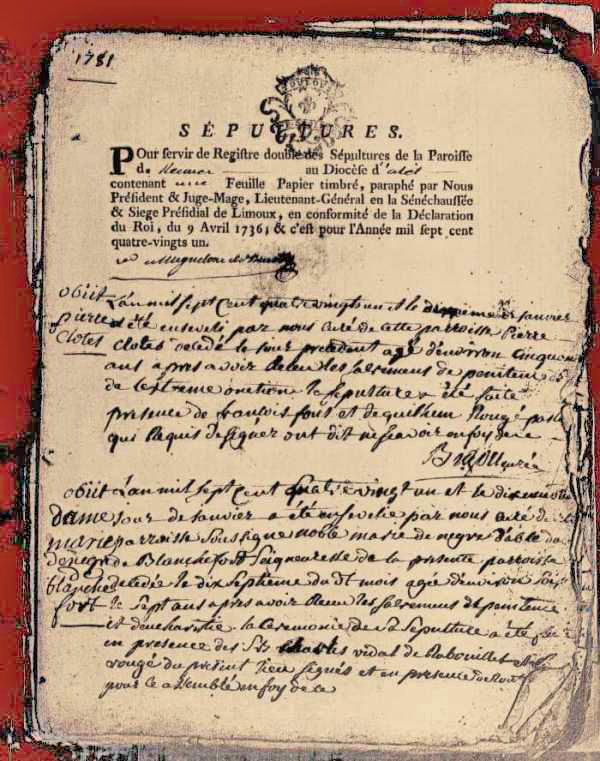 1781
SÉPULTURES.
POur servir de Registre double des Sépultures de la Paroisse
de Rennes au Diocèse d'alet
contenant une Feuille Papier timbré, paraphé par Nous
Président & Juge-Mage, Lieutenant-Général en la Sénéchaussée
& Siege Présidial de Limoux, en conformité de la Déclaration
du Roi, du 9 Avril 1736; & c'est pour l'Année mil sept cent
quatre-vingts un.
obiit L'an mil sept Cent quatre vingt un et le janvier
pierre a été enseveli par nous curé de cette parroisse pierre
clotes clotes decedé le jour precedent agé d'environ cinquante
ans apres avoir Receu les sacremens de penitence
de l'extreme onction la sepulture a été faite
presence de francois font et de guilhem Rougé
qui Requis de signer ont dit ne scavoir en foy de ce
curé
obiit L'an mil sept Cent quatre vingt un et le
dame jour de janvier a été ensevelie par nous curé de
marie parroisse soussigné noble marie de negre Dable
denegri de Blanchefort seigneuresse de la presente parroisse
blanche decedée le dix septieme du dt mois agée d'environ
fort sept ans apres avoir Receu les sacremens de penitence
et d'eucharistie la Ceremonie de sa sepulture a été
en presence des Srs vidal de Rabouillet
rougé du present Lieu signés et en presence de
pour ce assemblé en foy de ce